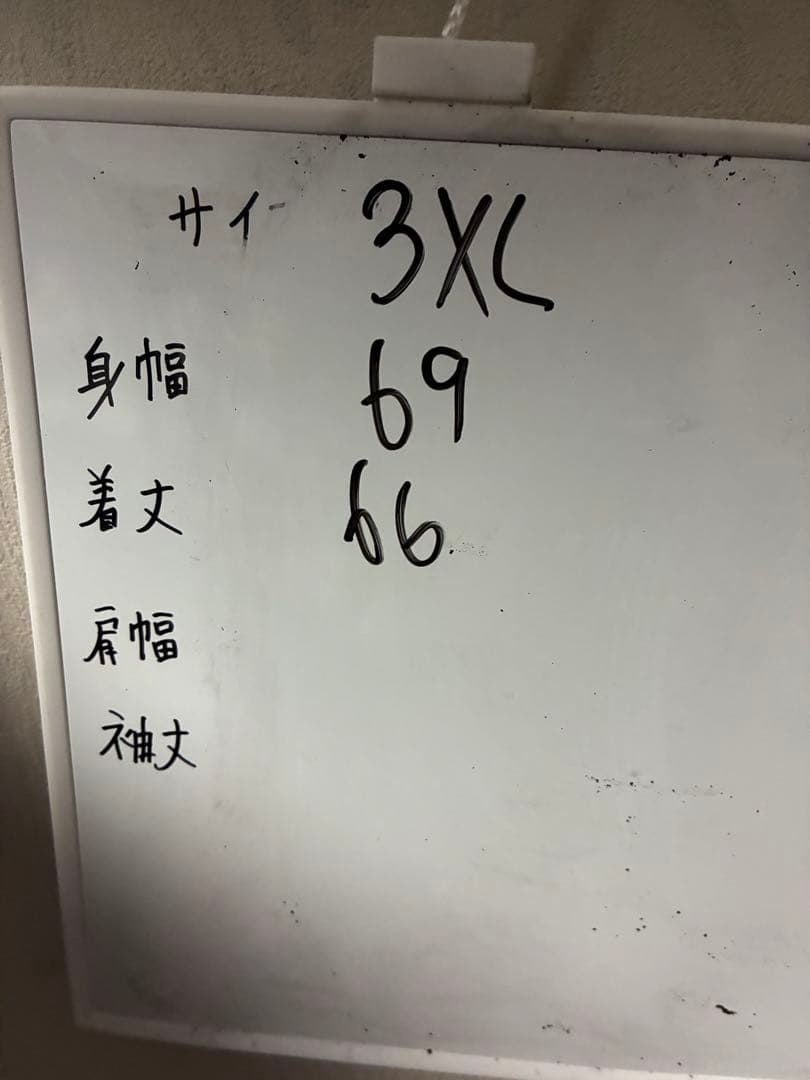 サイ 3XL
身幅 69
着丈 66
肩幅
袖丈